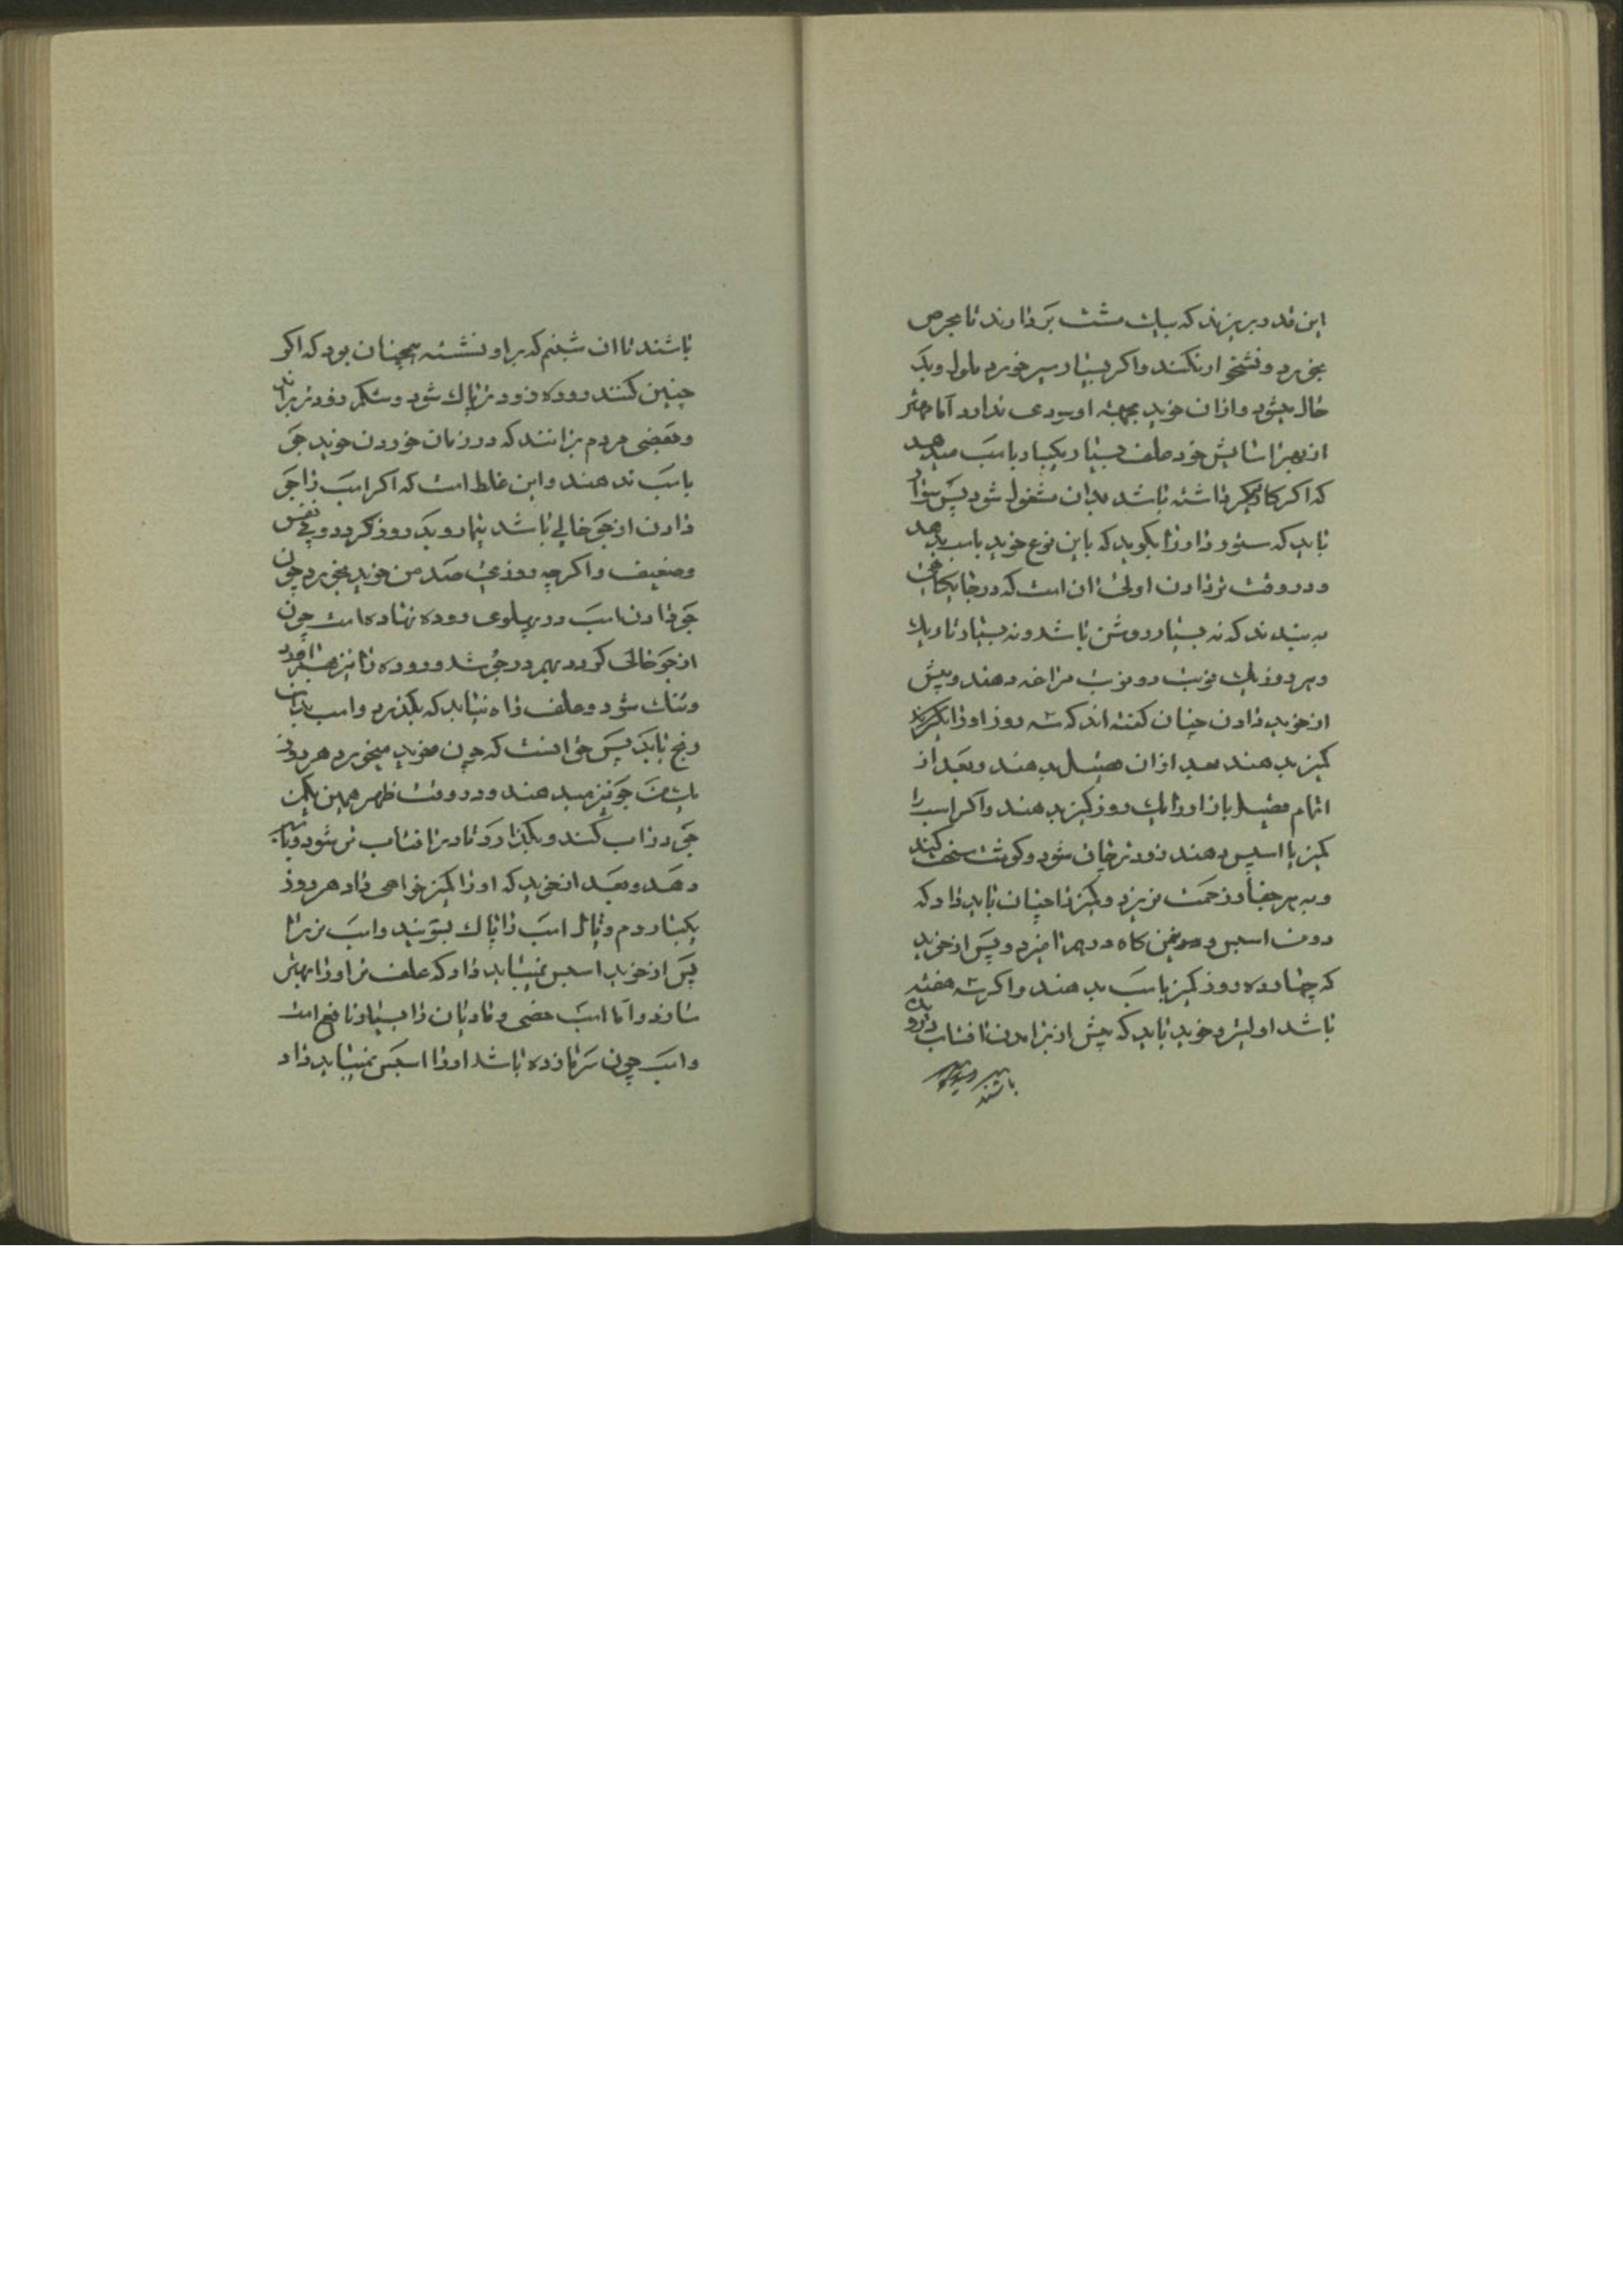 این قدر بریزند که بیک مشت بردارند تا بحرص
بخورد و نشخوار نکند و اکر بسیار سیر خورد ملول و یک
حال میشود و ازان خوید بجهة او سودی ندارد اما مهتر
از بهر اسایش خود علف بسیار یکبار باسب میدهد
که اکر کار دیکر داشته باشد بدان مشغول شود پس
باید که ستور دار را بکوید که باین نوع خوید باسب بدهد
و در وقت تر دادن اولی ان است که در
به بندند که نه بسیار روشن باشد و نه بسیار تاریک
و هر روز یک نوبت دو نوبت مراغه دهند و پیش
از خوید دادن چنان کفته اند که سه روز او را
کمیز بدهند بعد ازان بدهند و بعد از
اتمام باز او را یک روز کمیز بدهند و اکر اسب را
کمیز با اسپس دهند زودتر چاق شود و کوشت سخت کند
و به هر جفا و زحمت نریزد و کمیز را چنان باید داد که
دو من اسپس و من کاه در هم امیزد و پس از خوید
که چهارده روز کمیز باسب بدهند و اکر سه هفته
باشد اولیتر و خوید باید که پیش از برامدن افتاب
باشند
باشند تا ان شبنم که بر او نشسته همچنان بود که اکر
چنین کنند روده زودتر پاک شود و شکم زودتر براند
و بعضی مردم برانند که در زمان خوردن خوید جو
باسب ندهند و این غلط است که اکر اسب را جو
دادن از جو خالی باشد بیمار و یک روز کردد و بی نفس
و ضعیف و اکرچه روزی صد من خوید بخورد چون
جو دادن اسب در پهلوی روده نهاده است چون
از جو خالی کردد بهم در جوشد و روده را نیز
و تنک شود و علف راه نیابد که بکذرد و اسب بدان
رنج یابد پس حق انست که چون خوید میخورد هر روز
یک من جو نیز میدهند و در وقت ظهر همین یکمن
جو در اب کنند و بکذارد تا در افتاب تر شود
دهد و بعد از خوید که او را کمیز خواهی داد هر روز
یکبار دم و یال اسب را پاک بشویند و اسب نر را
پس از خوید اسپس نمیباید داد که علف تر او را بهتر
سازد و اما اسب خصی و مادیان را بسیار نافع است
و اسب چون سرما زده باشد او را اسپس نمیباید داد